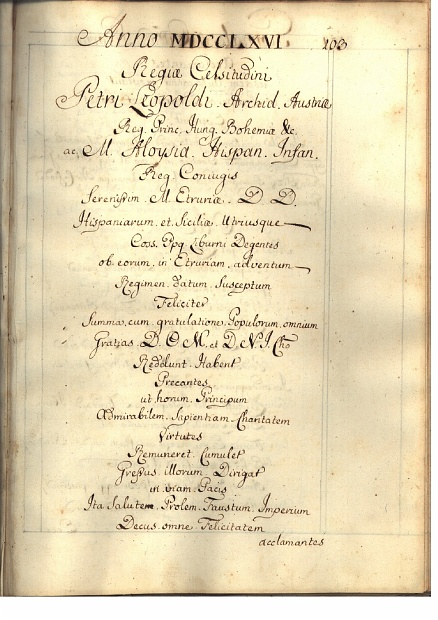 Anno MDCCLXVI 103
Regiæ Celsitudini
Petri Leopoldi. Archid. Austriæ
Reg. Princ. Hung. Bohemiæ &c.
ac M. Aloysiæ. Hispan. Infan.
Reg. Coniugis
Serenissim. M. Etruriæ. D D.
Hispaniarum. et. Siciliæ. Utriusque
Coss. Ppq Liburni Degentes
ob. eorum. in. Etruriam. adventum
Regimen. datum. Susceptum
Feliciter
Summa. cum. gratulatione. Populorum. omnium
Gratias. D. O. M. et D. N. I. Chō
Reddunt. Habent
Precantes
ut horum. Principum
Admirabilem. Sapientiam. Charitatem
Virtutes
Remuneret. Cumulet
Gressus illorum. Dirigat
in. viam. Pacis
Ita Salutem. Prolem. Faustum. Imperium
Decus. omne. Felicitatem
acclamantes